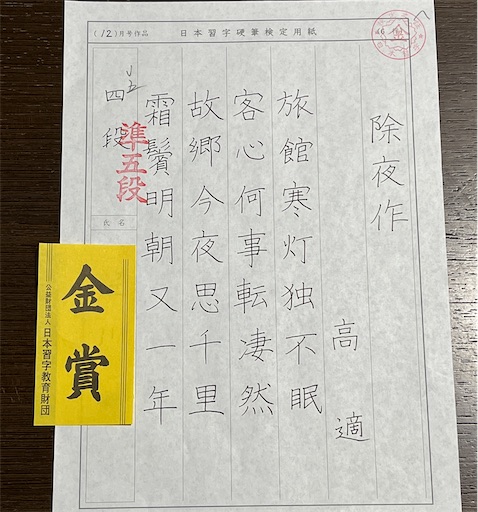 (12)月号作品
日本習字硬筆検定用紙
除夜作
高適
旅館寒灯独不眠
客心何事転凄然
故郷今夜思千里
霜鬢明朝又一年
四段
準五段
氏名
金賞
公益財団法人 日本習字教育財団